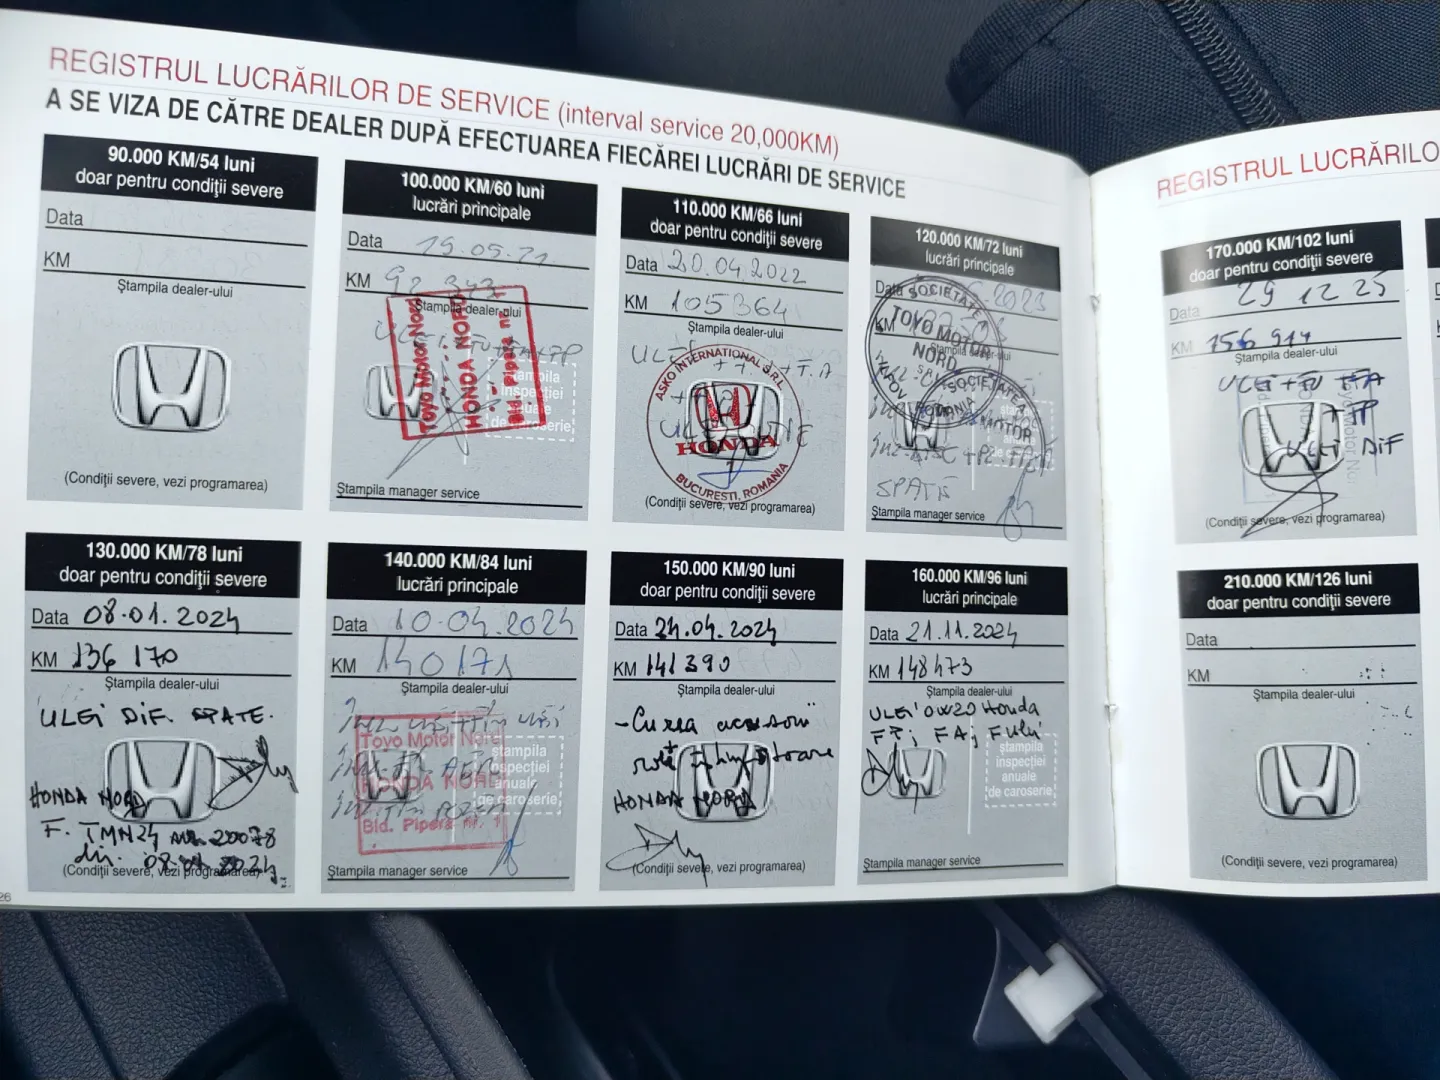 REGISTRUL LUCRĂRILOR DE SERVICE (interval service 20,000KM)
A SE VIZA DE CĂTRE DEALER DUPĂ EFECTUAREA FIECĂREI LUCRĂRI DE SERVICE
90.000 KM/54 luni
doar pentru condiţii severe
Data
KM
Ştampila dealer-ului
(Condiţii severe, vezi programarea)
100.000 KM/60 luni
lucrări principale
Data 19.05.21
KM 92 343
Ştampila dealer-ului
Toyo Motor Nord
HONDA NORD
Bld. Pipera nr. 1
ştampila
inspecţiei
anuale
de caroserie
Ştampila manager service
110.000 KM/66 luni
doar pentru condiţii severe
Data 20.04.2022
KM 105364
Ştampila dealer-ului
ASKO INTERNATIONAL S.R.L.
HONDA
1
BUCUREŞTI, ROMANIA
(Condiţii severe, vezi programarea)
120.000 KM/72 luni
lucrări principale
Data 2023
KM
Ştampila dealer-ului
SOCIETATEA
TOYO MOTOR
NORD
SRL
ILFOV ROMANIA
SOCIETATEA
MOTOR
SPATE
Ştampila manager service
130.000 KM/78 luni
doar pentru condiţii severe
Data 08.01.2024
KM 136 170
Ştampila dealer-ului
ULEI DIF. SPATE.
HONDA NORD
F. TMN24 20078
din. 08 2024
(Condiţii severe, vezi programarea)
140.000 KM/84 luni
lucrări principale
Data 10.04.2024
KM 140171
Ştampila dealer-ului
Toyo Motor Nord
HONDA NORD
Bld. Pipera nr. 1
ştampila
inspecţiei
anuale
de caroserie
Ştampila manager service
150.000 KM/90 luni
doar pentru condiţii severe
Data 24.04.2024
KM 141390
Ştampila dealer-ului
HONDA NORD
(Condiţii severe, vezi programarea)
160.000 KM/96 luni
lucrări principale
Data 21.11.2024
KM 148473
Ştampila dealer-ului
ULEI 0W20 Honda
ştampila
inspecţiei
anuale
de caroserie
Ştampila manager service
26
REGISTRUL LUCRĂRILO
170.000 KM/102 luni
doar pentru condiţii severe
Data 29 12 25
KM 156 914
Ştampila dealer-ului
ULEI + FU + FA
+ FP
ULEI DIF
(Condiţii severe, vezi programarea)
210.000 KM/126 luni
doar pentru condiţii severe
Data
KM
Ştampila dealer-ului
(Condiţii severe, vezi programarea)